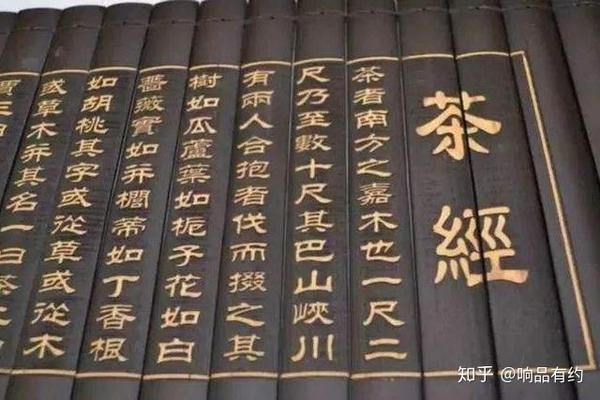 茶經
茶者南方之嘉木也一尺二
尺乃至數十尺其巴山峽川
有兩人合抱者伐而掇之其
樹如瓜蘆葉如栀子花如白
薔薇實如并櫚蒂如丁香根
如胡桃其字或從草或從木
或草木并其名一曰茶二曰
三曰
知乎 @响品有约